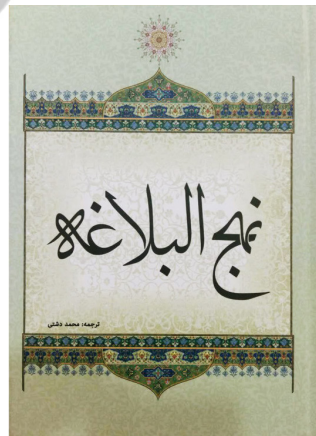 نهج البلاغه
ترجمه: محمد دشتی